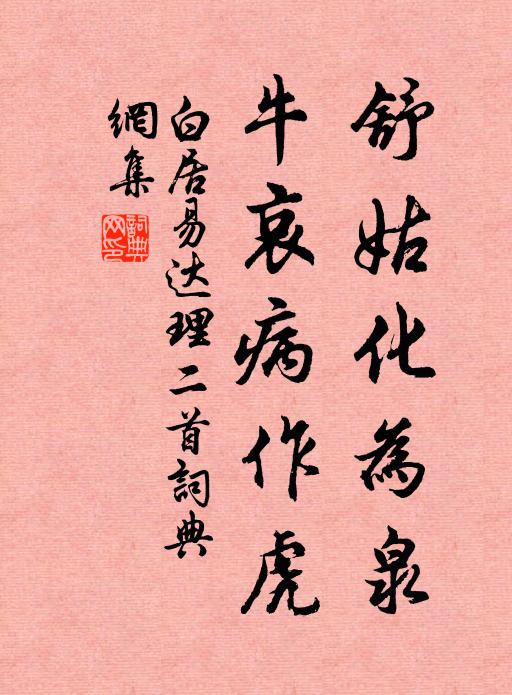 舒姑化為泉
牛哀病作虎
白居易达理二首詞典
網集
詞典網印